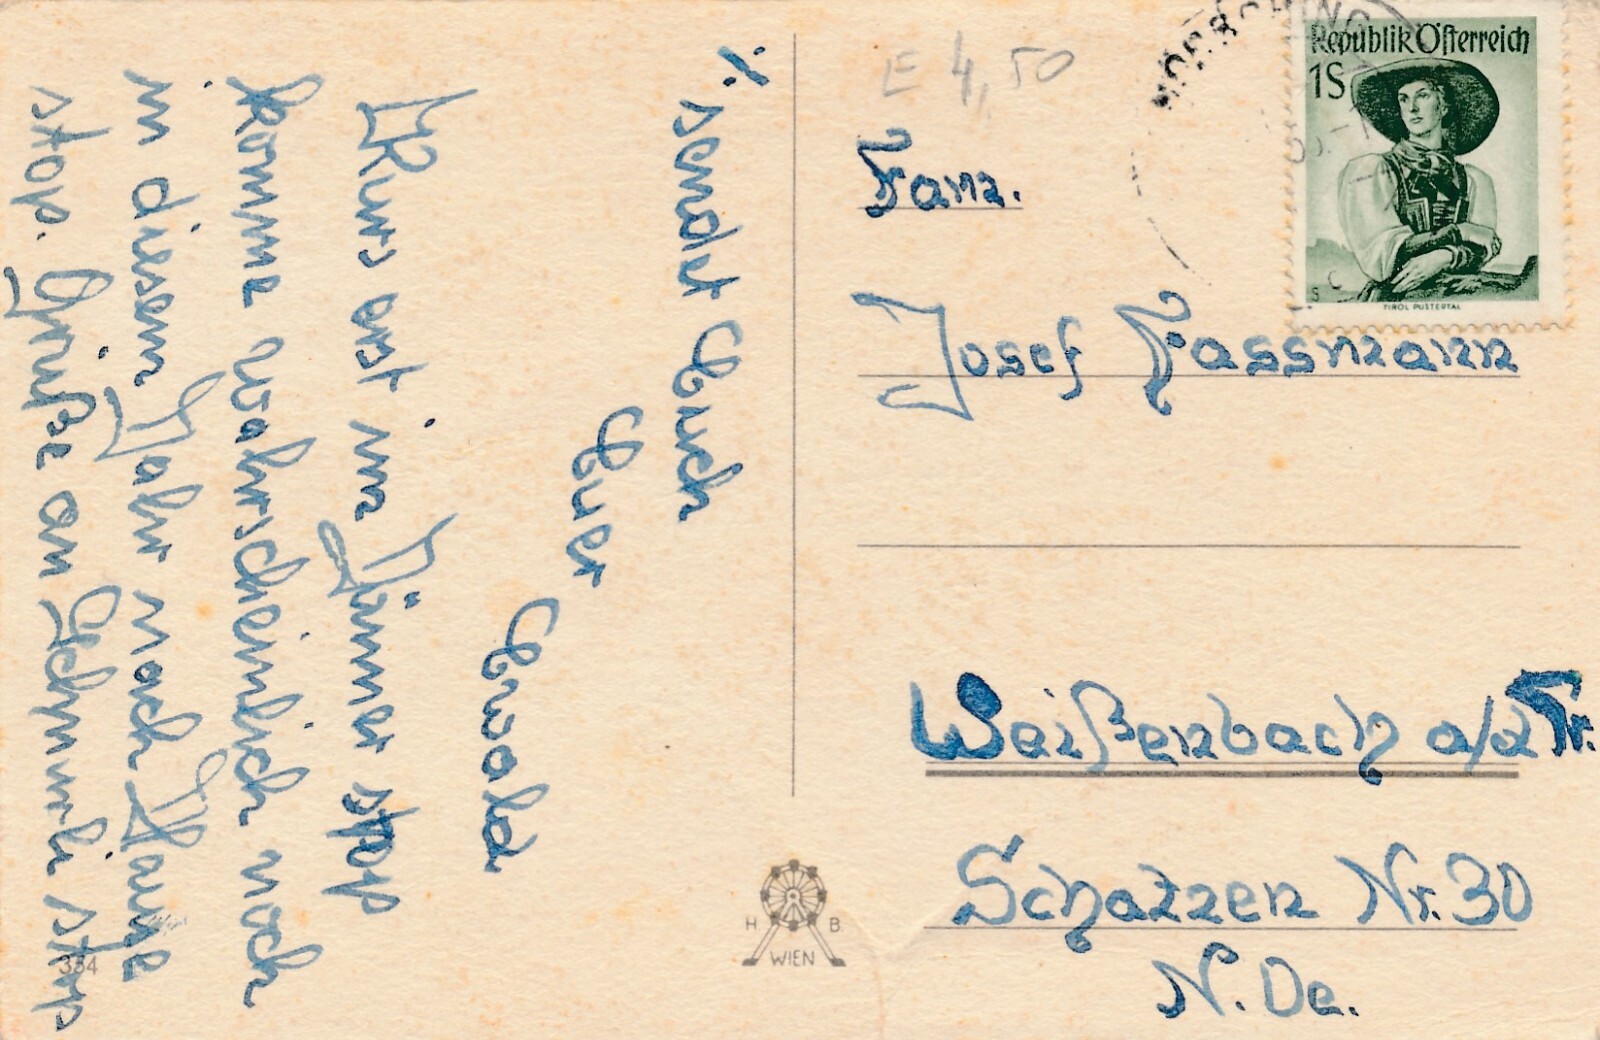 ·/. sendet Euch
Euer
Ewald
Kurs erst im Jänner stop
komme wahrscheinlich noch
in diesem Jahr nach Hause
stop. Grüße an stop
354
H. B.
WIEN
E 4,50
HÖRSCHING
Republik Österreich
1S
TIROL PUSTERTAL
Fam.
Josef Fassmann
Weißenbach a/d Tr.
Schatzen Nr. 30
N. Oe.